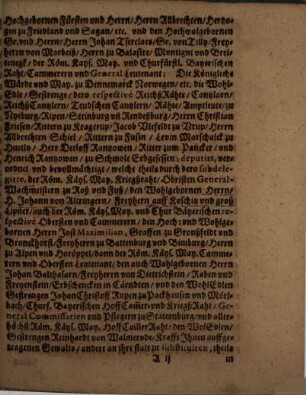 Hochgebornen Fürsten vnd Herrn/ Herrn Albrechten/ Hertzo-
gen zu Friedland vnd Sagan/ etc. vnd den Hochwolgebornen
Gr. vnd Herrn/ Herrn Johan Tserclaes/ Gr. von Tilly/ Frey-
herrn von Morbeiß/ Herrn zu Balastre/ Montigni vnd Brei-
tenegk/ der Röm. Käys. May. vnd Churfürstl. Bayerischen
Raht/ Cammerern vnd General Leutenant; Die Königliche
Würde vnd May. zu Dennemarck Norwegen/ etc. die Wohl-
Edle/ Gestrenge/ dero respectivè Reichs Rähte/ Cantzlern/
Reichs Cantzlern/ Teutschen Cantzlern/ Rähte/ Amptleute/ zu
Nyeburg/ Ripen/ Steinburg vn Rendeßburg/ Herrn Christian
Friesen/ Rittern zu Kragerup/ Jacob Vlefeldt zu Vrup/ Herrn
Albrechten Schiel/ Rittern zu Fusin/ Levin Marschalck zu
Hutlo/ Herr Detloff Rantzowen/ Ritter zum Pancker/ vnd
Henrich Rantzowen/ zu Schmole Erbgesessen/ deputiret, ver-
ordnet vnd bevollmächtigt/ welche theils durch dero subdele-
girte, der Röm. Käys. May. Kriegßraht/ Obristen General-
Wachtmeistern zu Roß vnd Fuß/ den Wohlgebornen Herrn/
H. Johann von Altringen/ Freyherrn auff Koschin vnd groß
Lipney/ auch der Röm. Käys. May. vnd Chur Bäyerischen re-
spectivè Obristen vnd Cammerern/ den Hoch- vnd Wohlge-
bornen Herrn Jost Maximilian, Graffen zu Gronßfeldt vnd
Bronckhorst/ Freyherrn zu Battenburg vnd Bimburg/ Herrn
zu Alpen vnd Horöppel/ dann der Röm. Käys. May. Camme-
rern vnd Obersten Leutenant/ den auch Wohlgebornen Herrn
Johan Balthasarn/ Freyherrn von Dietrichstein/ Raben vnd
Freyensten/ Erbschencken in Cärndten/ vnd den WohlEdlen
Gestrengen Johan Christoff Rupen zu Packhausen vnd Mörls-
bach/ Churf. Bayerischen Hoff Camer- vnd Kriegß Raht/ Ge-
neral Commissarien vnd Pflegern zu Stateenburg/ vnd aller-
höchst Röm. Käys. May. Hoff Cam̃er Raht/ den WolEdlen/
Gestrengen Reinhardt von Walmerode/ Krafft Ihnen auffge-
tragenen Gewalts/ andere an ihre statt zu substituiren, theils
A ij
in